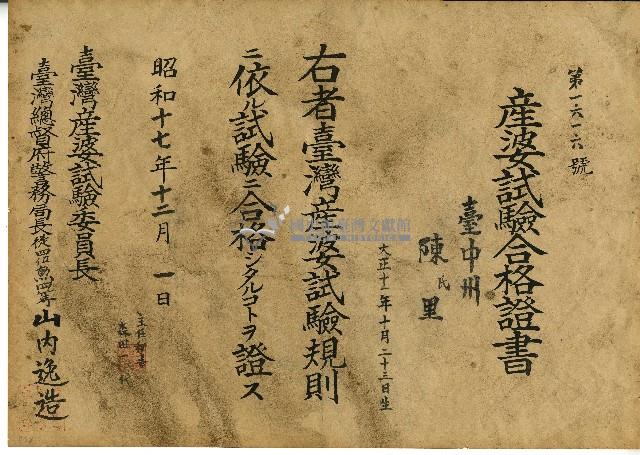 第一六一六號
産婆試驗合格證書
臺中州
陳氏里
大正十一年十月二十三日生
右者臺灣産婆試驗規則
ニ依ル試驗ニ合格シタルコトヲ證ス
昭和十七年十二月一日
臺灣産婆試驗委員長
臺灣總督府警務局長從四位勳四等山内逸造